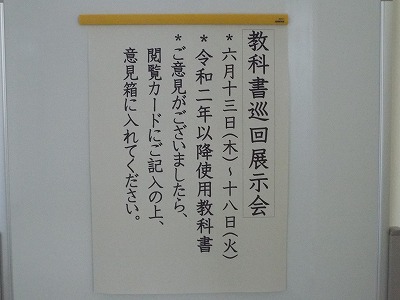 教科書巡回展示会
*六月十三日(木)~十八日(火)
*令和二年以降使用教科書
*ご意見がございましたら、
閲覧カードにご記入の上、
意見箱に入れてください。